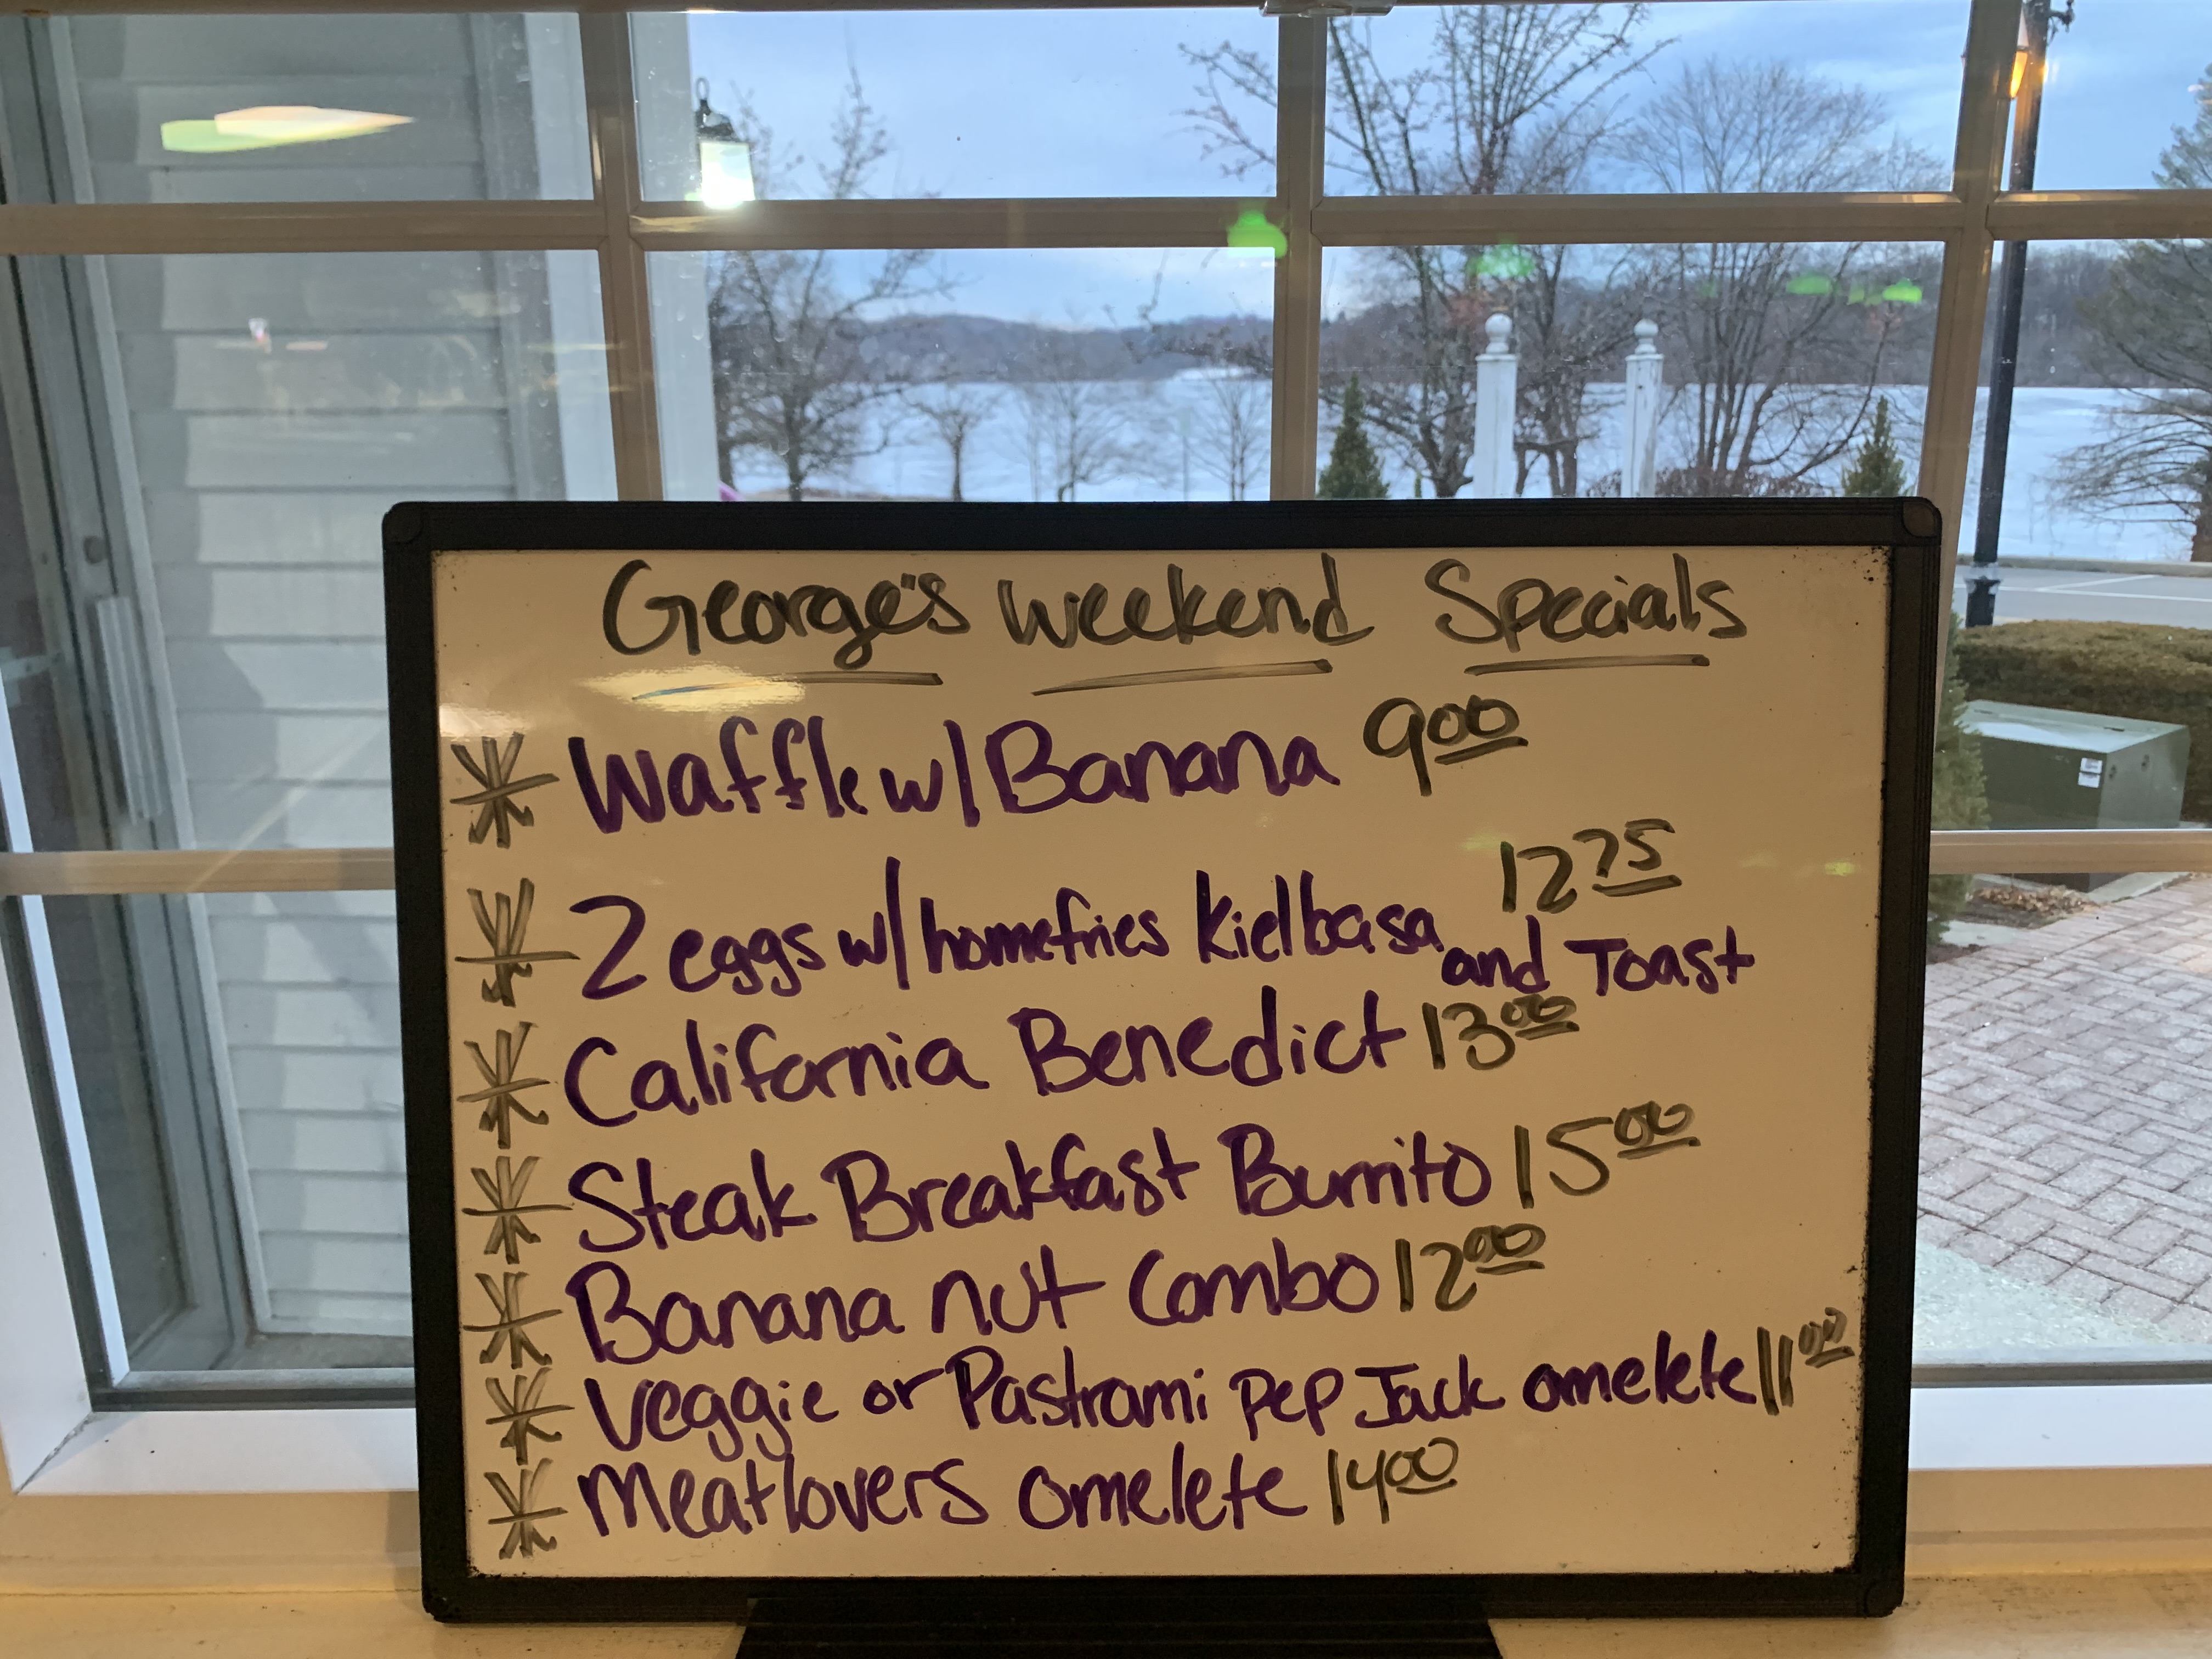 George's Weekend Specials
* Waffle w/ Banana 9.00
* 2 eggs w/ homefries Kielbasa and Toast 12.75
* California Benedict 13.00
* Steak Breakfast Burrito 15.00
* Banana nut Combo 12.00
* Veggie or Pastrami Pep Jack omelete 11.00
* Meatlovers omelete 14.00